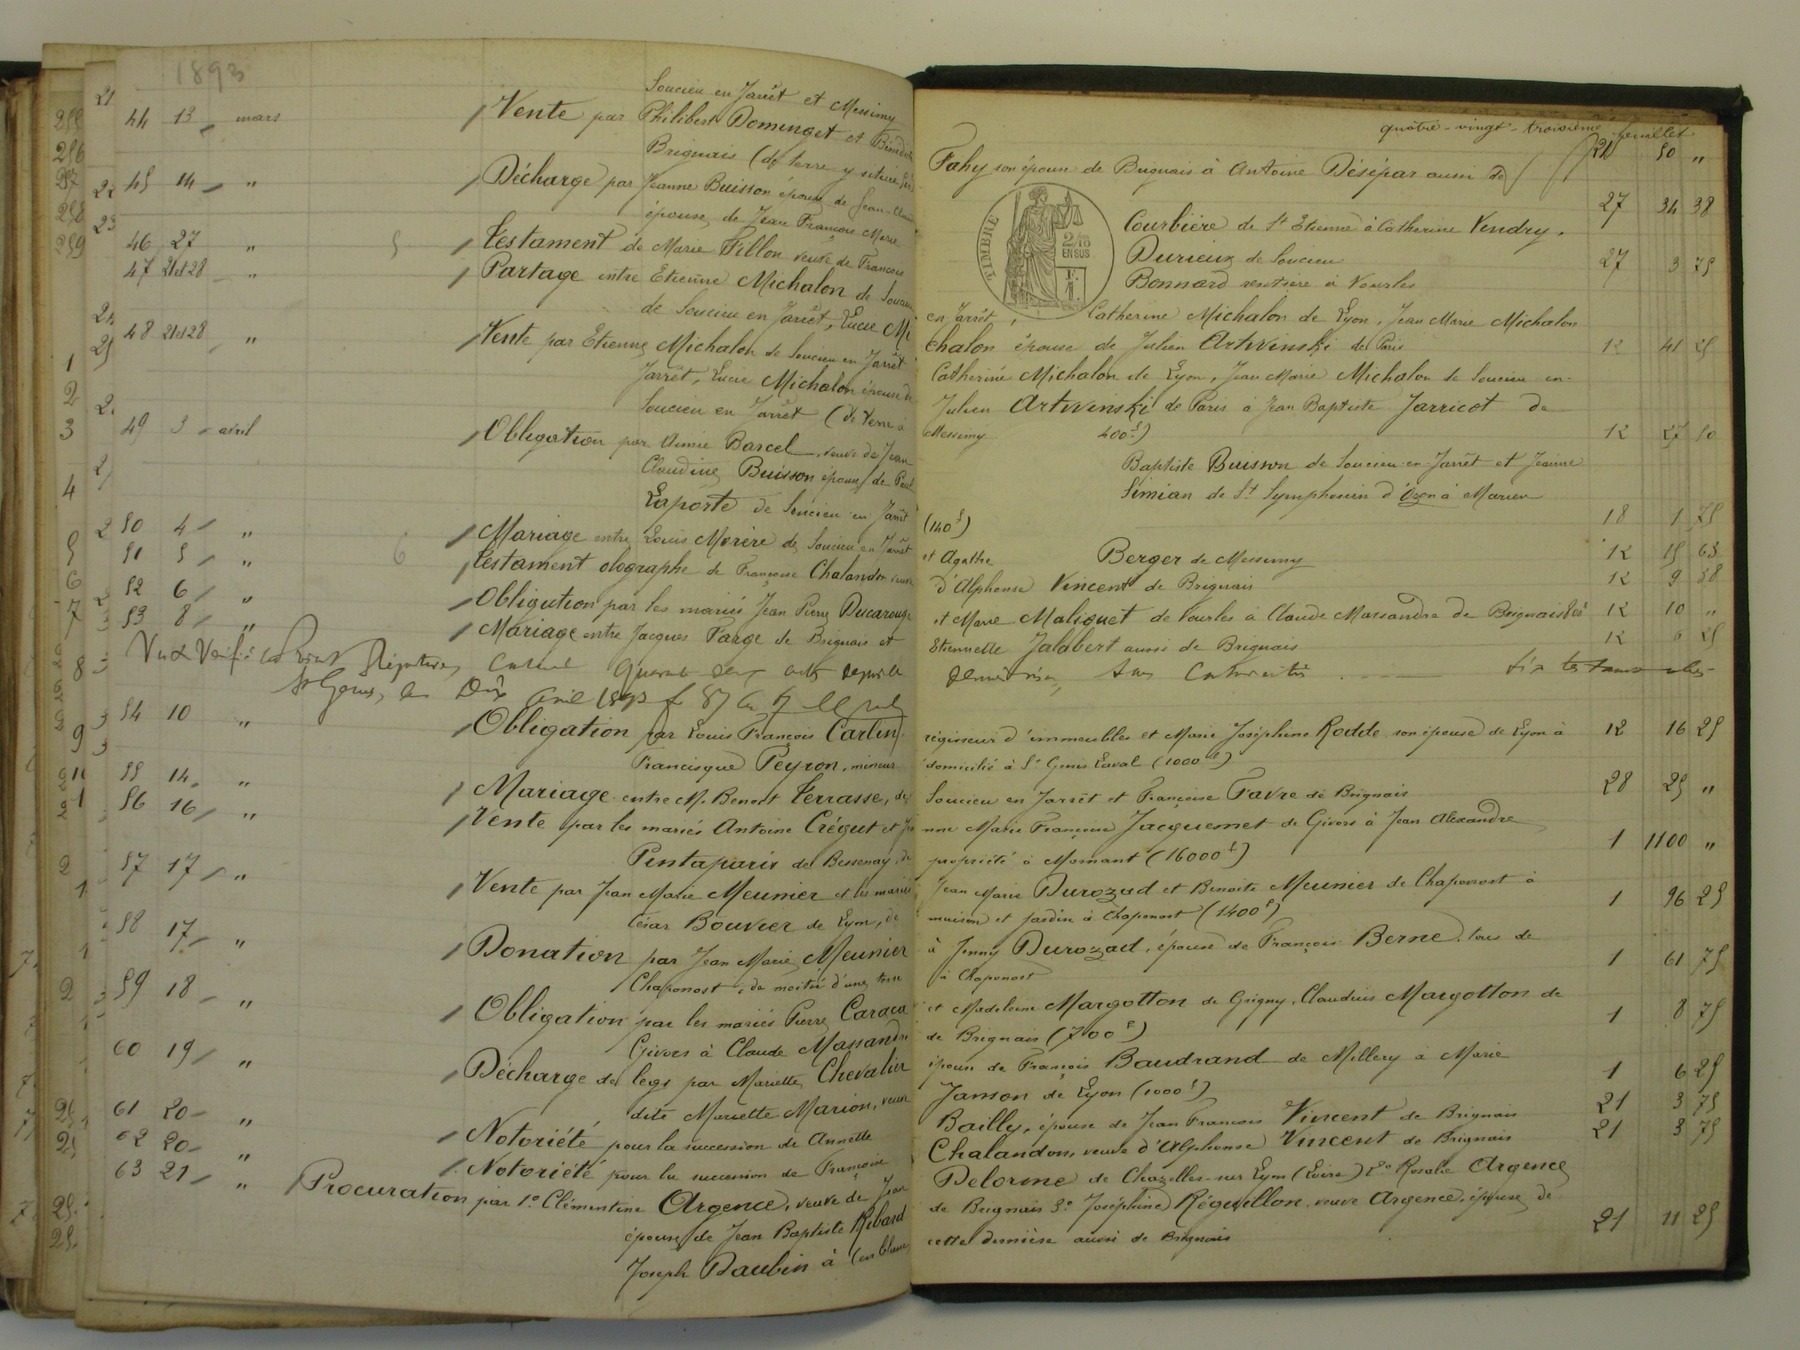 1893
quatre-vingt-troisième feuillet
Soucieu en Jarrêt et Messimy
44 13 mars Vente par Philibert Domenget et
Fahy son épouse de Brignais à Antoine Désépar aussi de 21 50 "
Brignais (de terre y située
45 14 " Décharge par Jeanne Buisson épouse de Jean-Claude
Courbière de St Etienne à Catherine Vendry, 27 34 38
épouse de Jean François Marie
Durieux de Soucieu
46 27 " 5 Testament de Marie Fillon veuve de François
Bonnard rentière à Vourles 27 3 75
TIMBRE
2/10
EN SUS
47 21 et 28 " Partage entre Etienne Michalon de Soucieu
en Jarrêt, Catherine Michalon de Lyon, Jean Marie Michalon
de Soucieu en Jarrêt, Lucie Mi
chalon épouse de Julien Artwinski de Paris 12 41 25
48 21 et 28 " Vente par Etienne Michalon de Soucieu en Jarrêt
Catherine Michalon de Lyon, Jean Marie Michalon de Soucieu en
Jarrêt, Lucie Michalon épouse de
Julien Artwinski de Paris à Jean Baptiste Jarricot de
Soucieu en Jarrêt (de terre à
Messimy 400f) 12 27 50
49 3 avril Obligation par Aimée Barcel, veuve de Jean
Baptiste Buisson de Soucieu-en-Jarrêt et Jeanne
Claudine Buisson épouse de Paul
Simian de St Symphorien d'Ozon à Marien
Laporte de Soucieu en Jarrêt
(140f) 18 1 75
50 4 " Mariage entre Louis Morère de Soucieu en Jarrêt
et Agathe Berger de Messimy 12 15 63
51 5 " 6 Testament olographe de Françoise Chalandon veuve
d'Alphonse Vincent de Brignais 12 9 38
52 6 " Obligation par les mariés Jean Pierre Ducarouge
et Marie Maliquet de Vourles à Claude Massandre de Brignais 12 10 "
53 8 " Mariage entre Jacques Farge de Brignais et
Etiennette Jalabert aussi de Brignais 12 6 25
Vu et Vérifié le Répertoire
St Genis, le Dix avril 1893
54 10 " Obligation par Louis François Carlin
régisseur d'immeubles et Marie Joséphine Rodde son épouse de Lyon à 12 16 25
Francisque Peyron, mineur
domicilié à St Genis Laval (1000f)
55 14 " Mariage entre M. Benoit Terrasse, de
Soucieu en Jarrêt et Françoise Favre de Brignais 28 25 "
56 16 " Vente par les mariés Antoine Créqut et Jean
nne Marie Françoise Jacquemet de Givors à Jean Alexandre
Pentaparis de Bessenay, de
propriété à Mornant (16000f) 1 1100 "
57 17 " Vente par Jean Marie Meunier et les mariés
Jean Marie Durozad et Benoite Meunier de Chaponost à
César Bouvier de Lyon, de
maison et jardin à Chaponost (1400f) 1 96 25
58 17 " Donation par Jean Marie Meunier
à Jenny Durozad, épouse de François Berne tous de
Chaponost, de moitié d'une terre
à Chaponost 1 61 75
59 18 " Obligation par les mariés Pierre Caraca
et Madeleine Margotton de Grigny, Claudius Margotton de
Givors à Claude Massandre
de Brignais (700f) 1 8 75
60 19 " Décharge de legs par Mariette Chevalier
épouse de François Baudrand de Millery à Marie
dite Mariette Marion, veuve
Janson de Lyon (1000f) 1 6 25
61 20 " Notoriété pour la succession de Annette
Bailly, épouse de Jean François Vincent de Brignais 21 3 75
62 20 " Notoriété pour la succession de Françoise
Chalandon, veuve d'Alphonse Vincent de Brignais 21 3 75
63 21 " Procuration par 1º Clémentine Argence, veuve de Jean
Delorme de Chazelles-sur-Lyon (Loire) 2º Rosalie Argence
épouse de Jean Baptiste Ribard
de Brignais 3º Joséphine Réguillon, veuve Argence, épouse de
Joseph Daubin à (en blanc
cette dernière aussi de Brignais 21 11 25